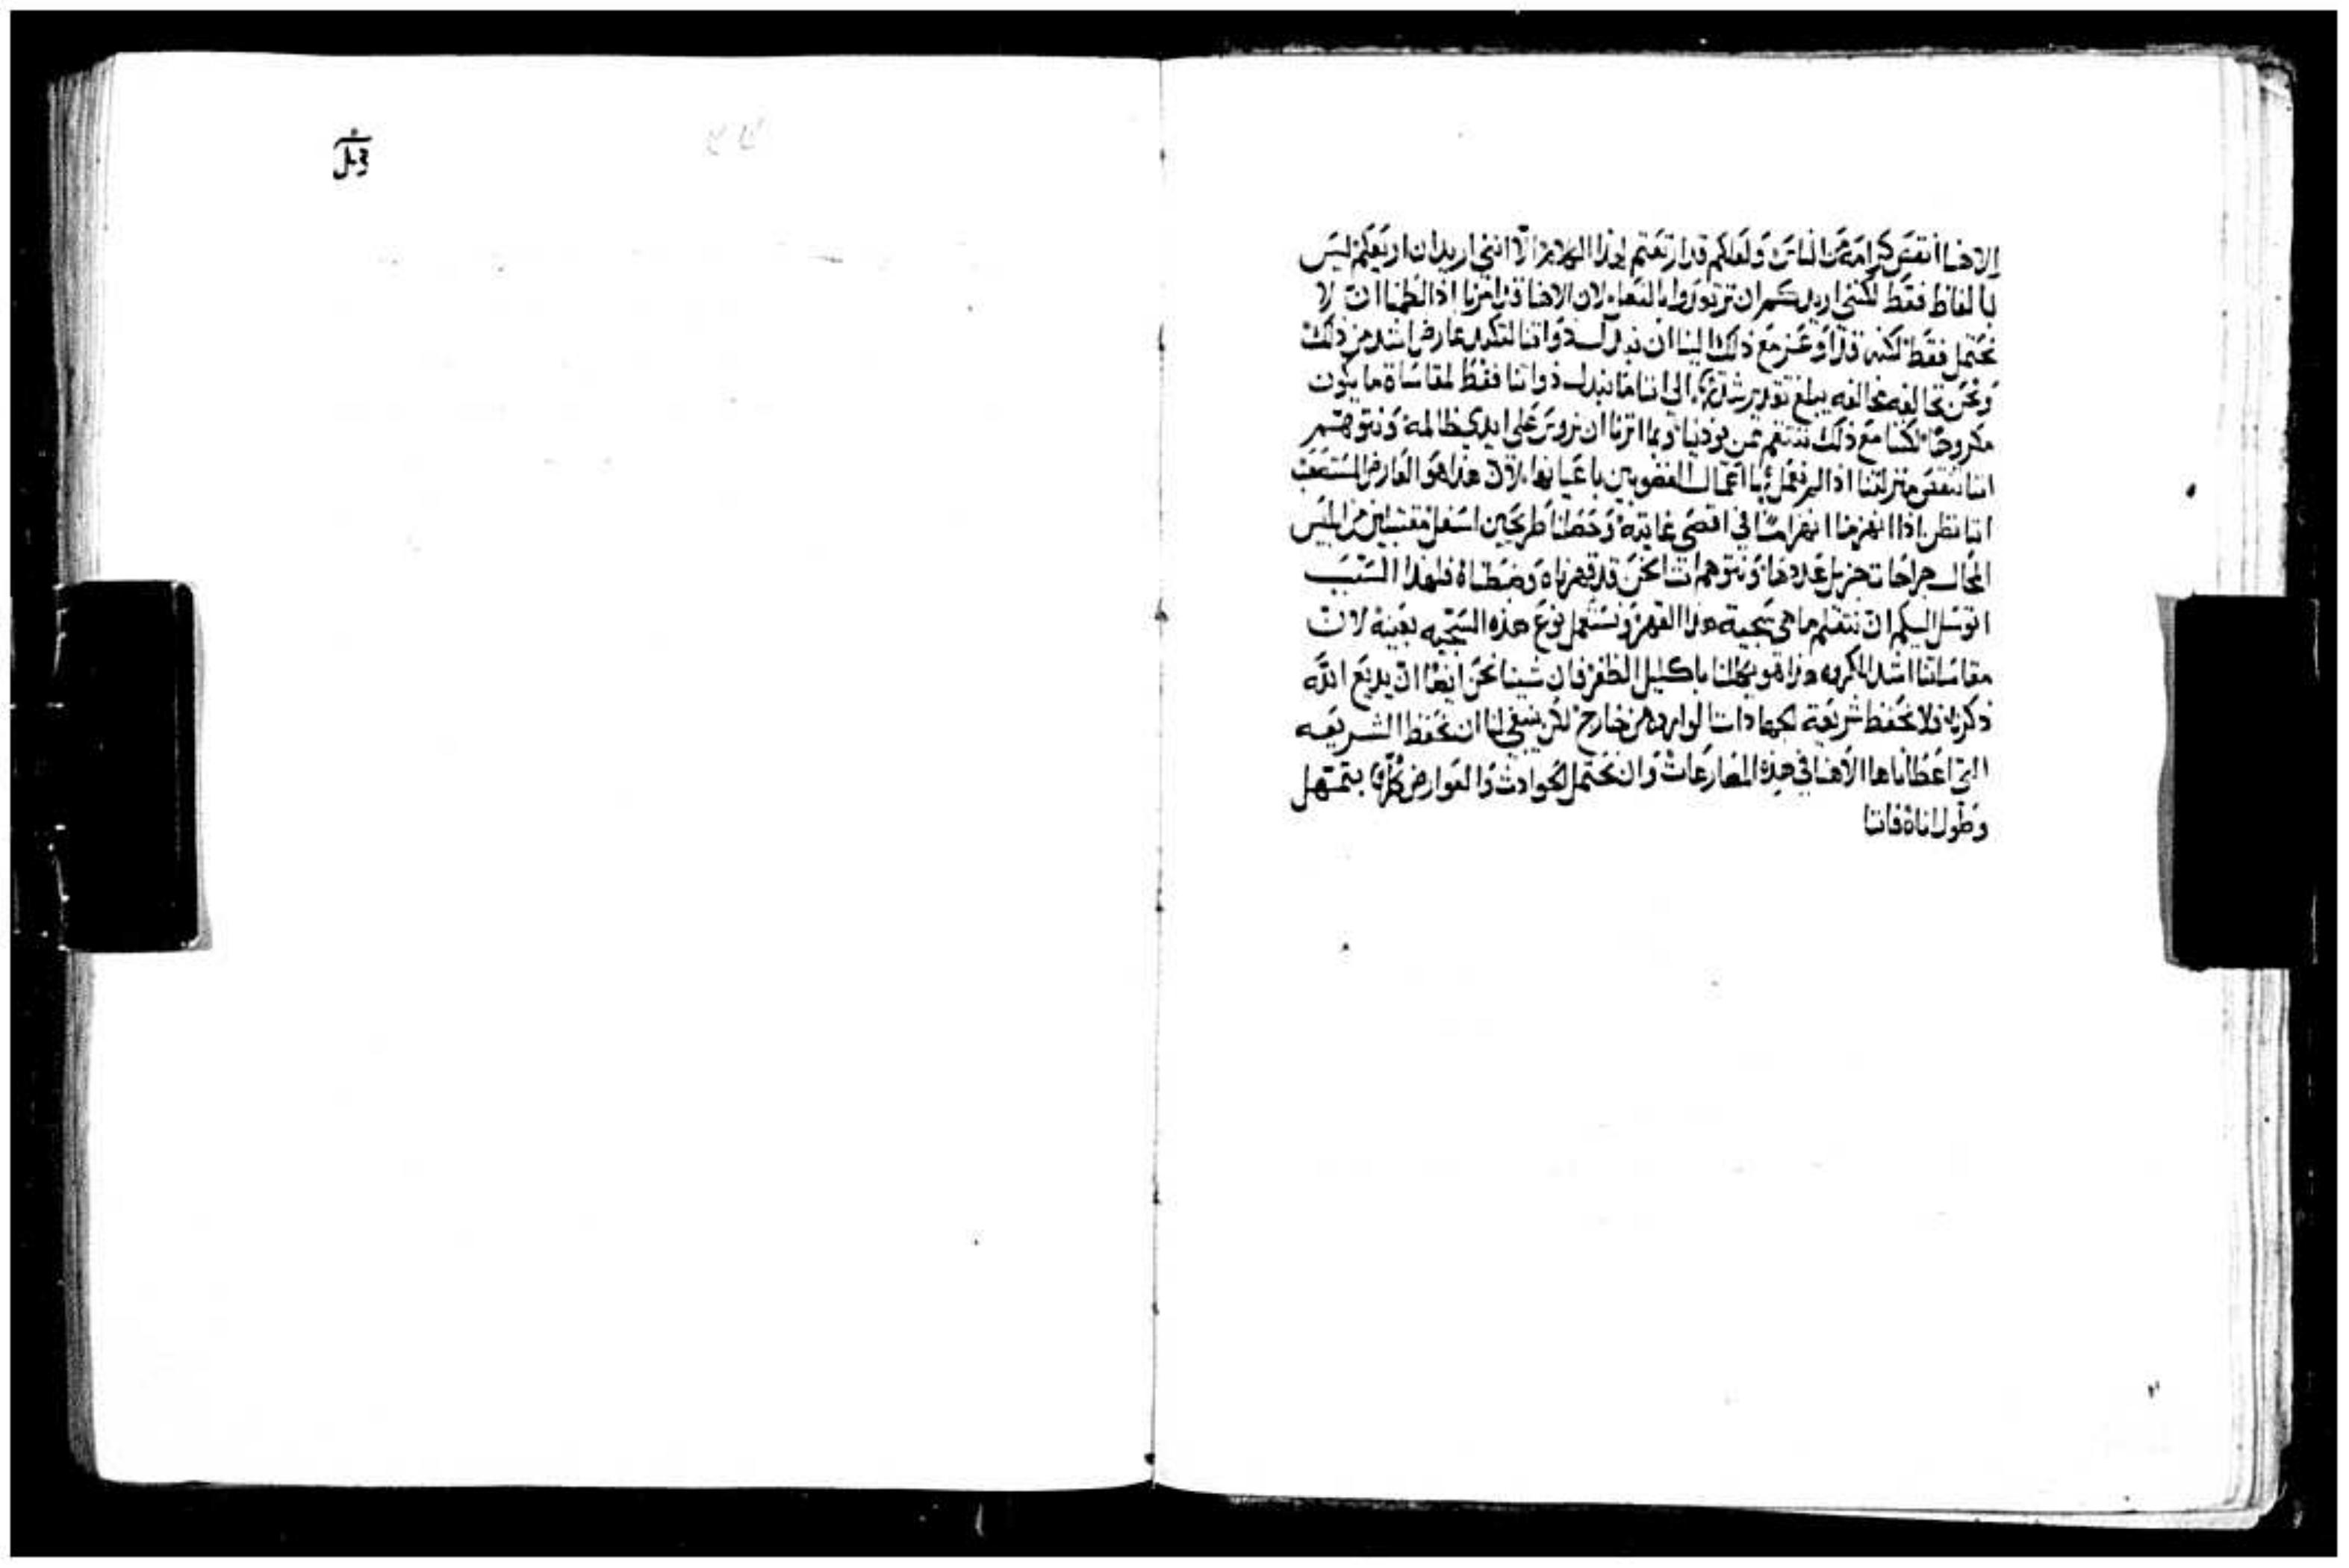 الاهنا انقص كرامة من الناس ولعلكم قد ارتعتم لهذا الكلام الا انني اريد ان اريعكم ليس
بالفاظ فقط لكنني اريدكم ان ترتاعوا بالفعل لان الاهنا قد امرنا اذا لطمنا ان لا
نحتمل فقط لكنه قد اوعز مع ذلك الينا ان نبذل ذواتنا لتكبد عارض اشد من ذلك
ونحن نخالفه مخالفه يبلغ شدتها الى اننا ما نبذل ذواتنا فقط لمقاساة ما يكون
مكروها لكننا مع ذلك ننتقم ممن يوذينا وبما اثرنا ان نروس على ايدي ظالمة ونتوهم
اننا ننقص منزلتنا اذا لم نعمل اعمال المغضوبين باعيانها لان هذا هو العارض المستصعب
اننا نظن اذا انهزمنا انهزامًا في اقصى غايته وحصلنا طريحين اسفل مقتبلين من ابليس
المحال جراحات جزيل عددها ونتوهم اننا نحن قد قهرناه وضبطناه فلهذا السبب
اتوسل اليكم ان نتعلم ما هي سجية هذا القهر ونستعمل نوع هذه السجيه بعينه لان
مقاساتنا اشد المكروه هذا هو تكللنا باكليل الظفر فان شينا نحن ايضًا ان يذيع الله
ذكرنا فلا نحفظ شريعة الجهادات الوارده من خارج لكن ينبغي لنا ان نحفظ الشريعه
التي اعطاناها الاهنا في هذه المصارعات وان نحتمل الحوادث والعوارض كلها بتمهل
وطول اناة فاننا